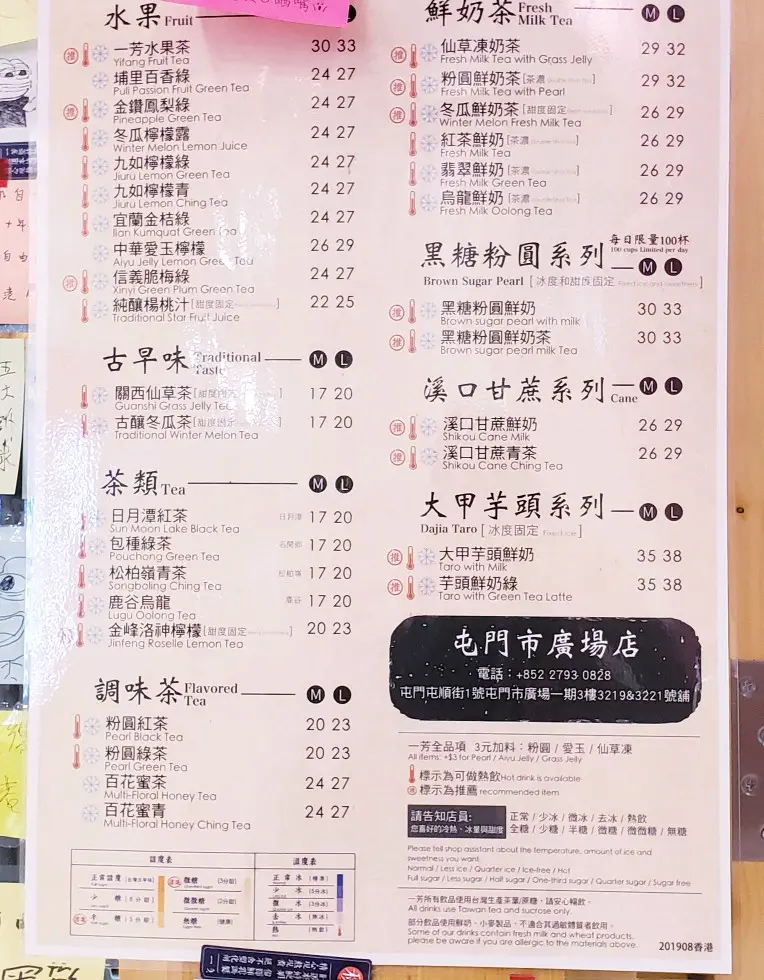 水果 Fruit
一芳水果茶 30 33
Yifang Fruit Tea
埔里百香綠 24 27
Puli Passion Fruit Green Tea
金鑽鳳梨綠 24 27
Pineapple Green Tea
冬瓜檸檬露 24 27
Winter Melon Lemon Juice
九如檸檬綠 24 27
Jiuru Lemon Green Tea
九如檸檬青 24 27
Jiuru Lemon Ching Tea
宜蘭金桔綠 24 27
Ilan Kumquat Green Tea
中華愛玉檸檬 26 29
Aiyu Jelly Lemon Green Tea
信義脆梅綠 24 27
Xinyi Green Plum Green Tea
純釀楊桃汁 [甜度固定] 22 25
Traditional Star Fruit Juice
古早味 Traditional Taste M L
關西仙草茶 17 20
Guanshi Grass Jelly Tea
古釀冬瓜茶 17 20
Traditional Winter Melon Tea
茶類 Tea M L
日月潭紅茶 日月潭 17 20
Sun Moon Lake Black Tea
包種綠茶 17 20
Pouchong Green Tea
松柏嶺青茶 松柏嶺 17 20
Songboling Ching Tea
鹿谷烏龍 鹿谷 17 20
Lugu Oolong Tea
金峰洛神檸檬 [甜度固定] 20 23
Jinfeng Roselle Lemon Tea
調味茶 Flavored Tea M L
粉圓紅茶 20 23
Pearl Black Tea
粉圓綠茶 20 23
Pearl Green Tea
百花蜜茶 24 27
Multi-Floral Honey Tea
百花蜜青 24 27
Multi-Floral Honey Ching Tea
甜度表 溫度表
鮮奶茶 Fresh Milk Tea M L
仙草凍奶茶 29 32
Fresh Milk Tea with Grass Jelly
粉圓鮮奶茶 [茶濃] 29 32
Fresh Milk Tea with Pearl
冬瓜鮮奶茶 [甜度固定] 26 29
Winter Melon Fresh Milk Tea
紅茶鮮奶 [茶濃] 26 29
Fresh Milk Tea
翡翠鮮奶 [茶濃] 26 29
Fresh Milk Green Tea
烏龍鮮奶 [茶濃] 26 29
Fresh Milk Oolong Tea
黑糖粉圓系列 每日限量100杯
100 cups Limited per day
Brown Sugar Pearl [冰度和甜度固定 Fixed ice and sweetness] M L
黑糖粉圓鮮奶 30 33
Brown sugar pearl with milk
黑糖粉圓鮮奶茶 30 33
Brown sugar pearl milk Tea
溪口甘蔗系列 Cane M L
溪口甘蔗鮮奶 26 29
Shikou Cane Milk
溪口甘蔗青茶 26 29
Shikou Cane Ching Tea
大甲芋頭系列 M L
Dajia Taro [冰度固定 Fixed ice]
大甲芋頭鮮奶 35 38
Taro with Milk
芋頭鮮奶綠 35 38
Taro with Green Tea Latte
屯門市廣場店
電話：+852 2793 0828
屯門屯順街1號屯門市廣場一期3樓3219&3221號舖
一芳全品項 3元加料：粉圓 / 愛玉 / 仙草凍
All items: +$3 for Pearl / Aiyu Jelly / Grass Jelly
標示為可做熱飲Hot drink is available
推 標示為推薦 recommended item
請告知店員:
您喜好的冷熱、冰量與甜度
正常 / 少冰 / 微冰 / 去冰 / 熱飲
全糖 / 少糖 / 半糖 / 微糖 / 微微糖 / 無糖
Please tell shop assistant about the temperature, amount of ice and
sweetness you want
Normal / Less ice / Quarter ice / Ice-free / Hot
Full sugar / Less sugar / Half sugar / One-third sugar / Quarter sugar / Sugar free
一芳所有飲品使用台灣生產茶葉/蔗糖，請安心暢飲。
All drinks use Taiwan tea and sucrose only.
部分飲品使用鮮奶、小麥製品，不適合其過敏體質者飲用。
Some of our drinks contain fresh milk and wheat products,
please be aware if you are allergic to the materials above.
201908香港